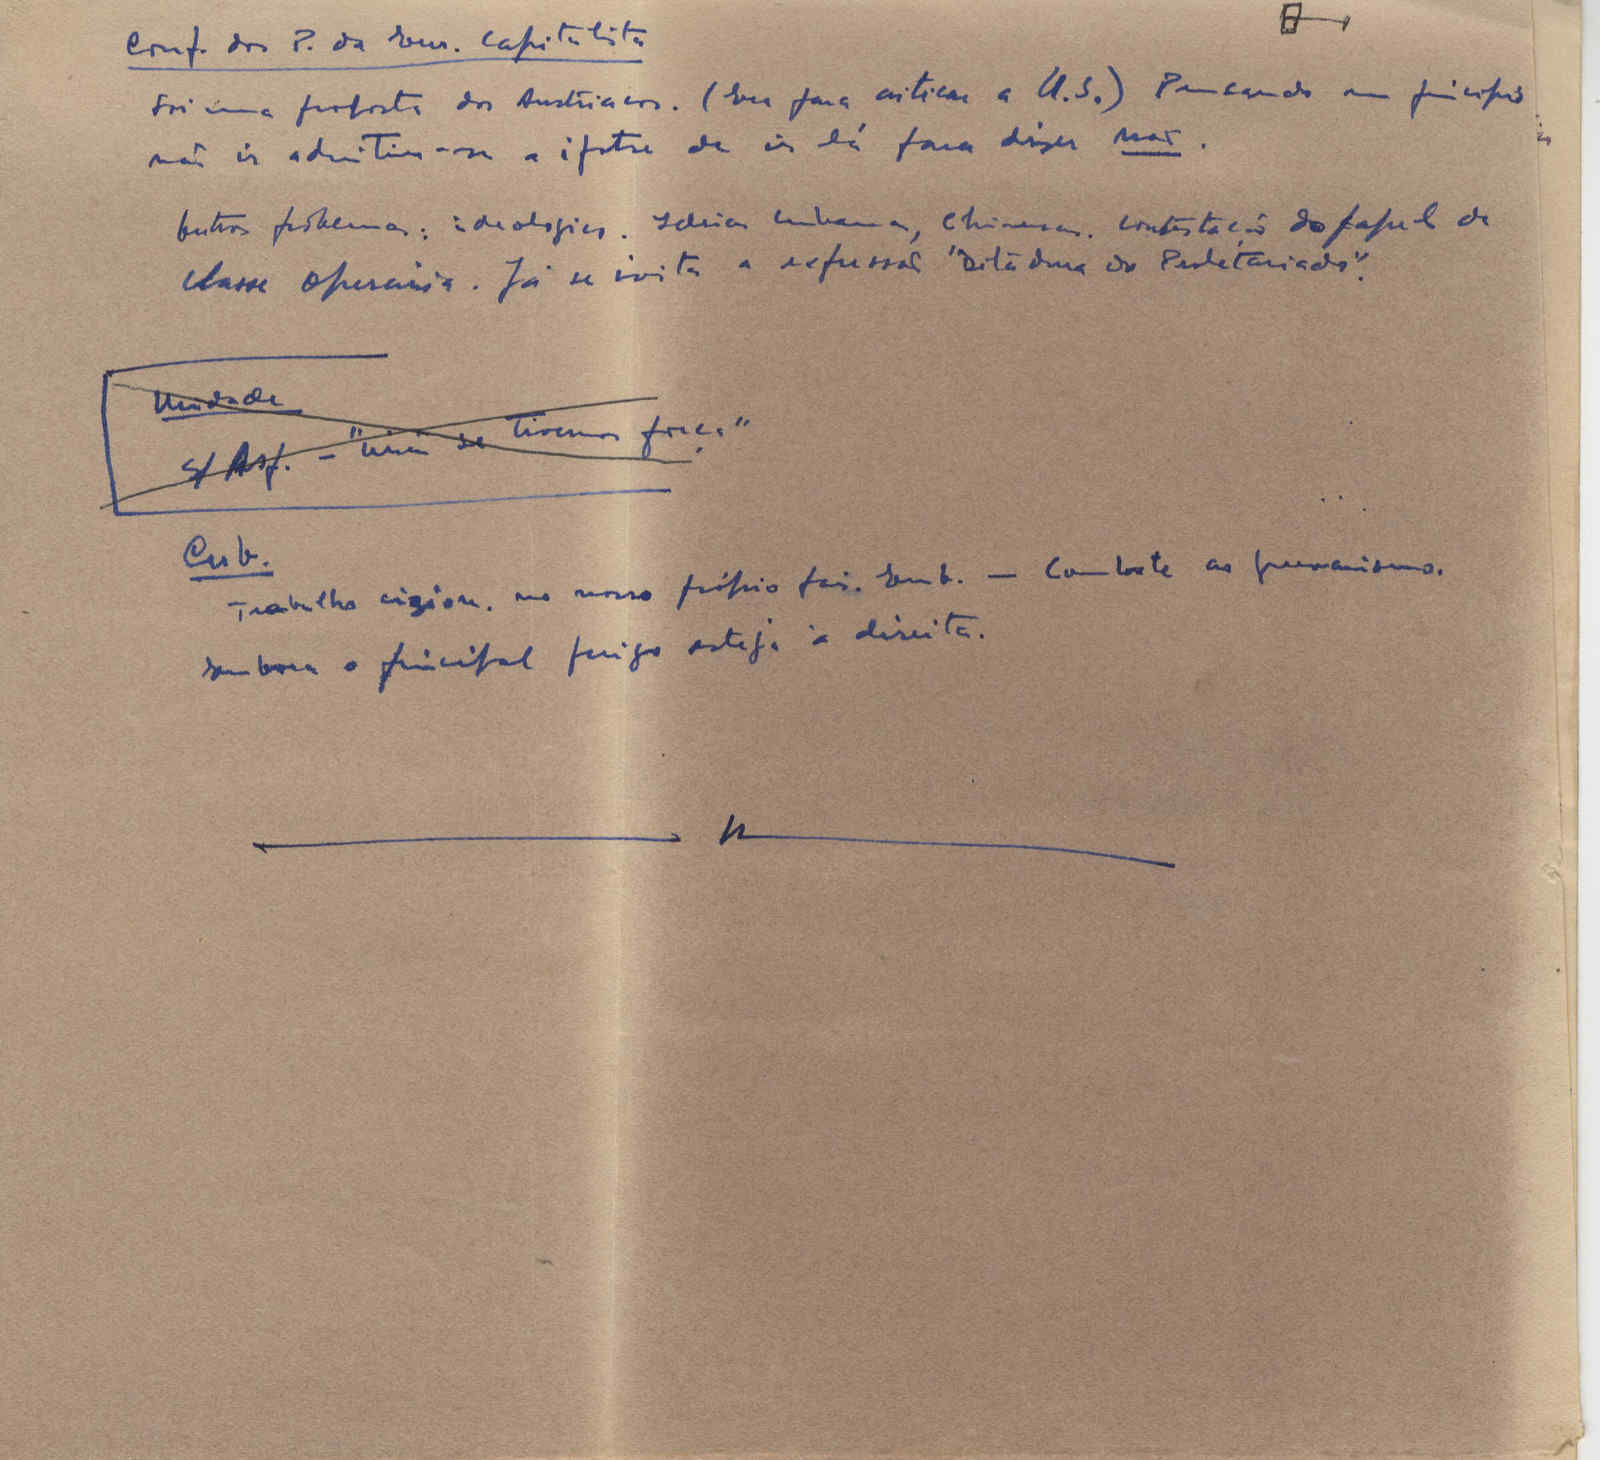 Conf. dos P. da Eur. Capitalista
Foi uma proposta dos Austriacos. (Era para criticar a U.S.) Pensando em principio
não ir admitiu-se a ipotse de ir lá para dizer não.
Outros problemas: ideologico. Ideias cubanas, Chinesas. Contestação do papel da
classe operária. Já se ivita a expressão "Ditadura do Proletariado".
Unidade
S/ Asp. - "União se tivermos força"
Cub.
Trabalho no nosso próprio pais. Comb. - Combate ao
Embora o principal perigo esteja à direita.